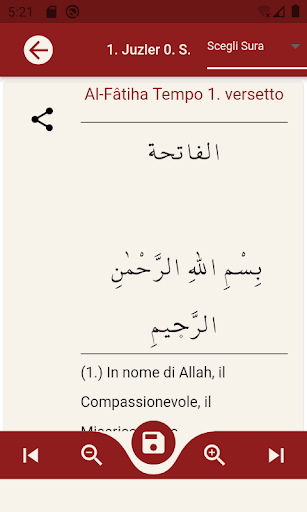 5:21
1. Juzler 0. S.
Scegli Sura
Al-Fâtiha Tempo 1. versetto
الفاتحة
بِسْمِ اللهِ الرَّحْمٰنِ
الرَّحِيمِ
(1.) In nome di Allah, il
Compassionevole, il